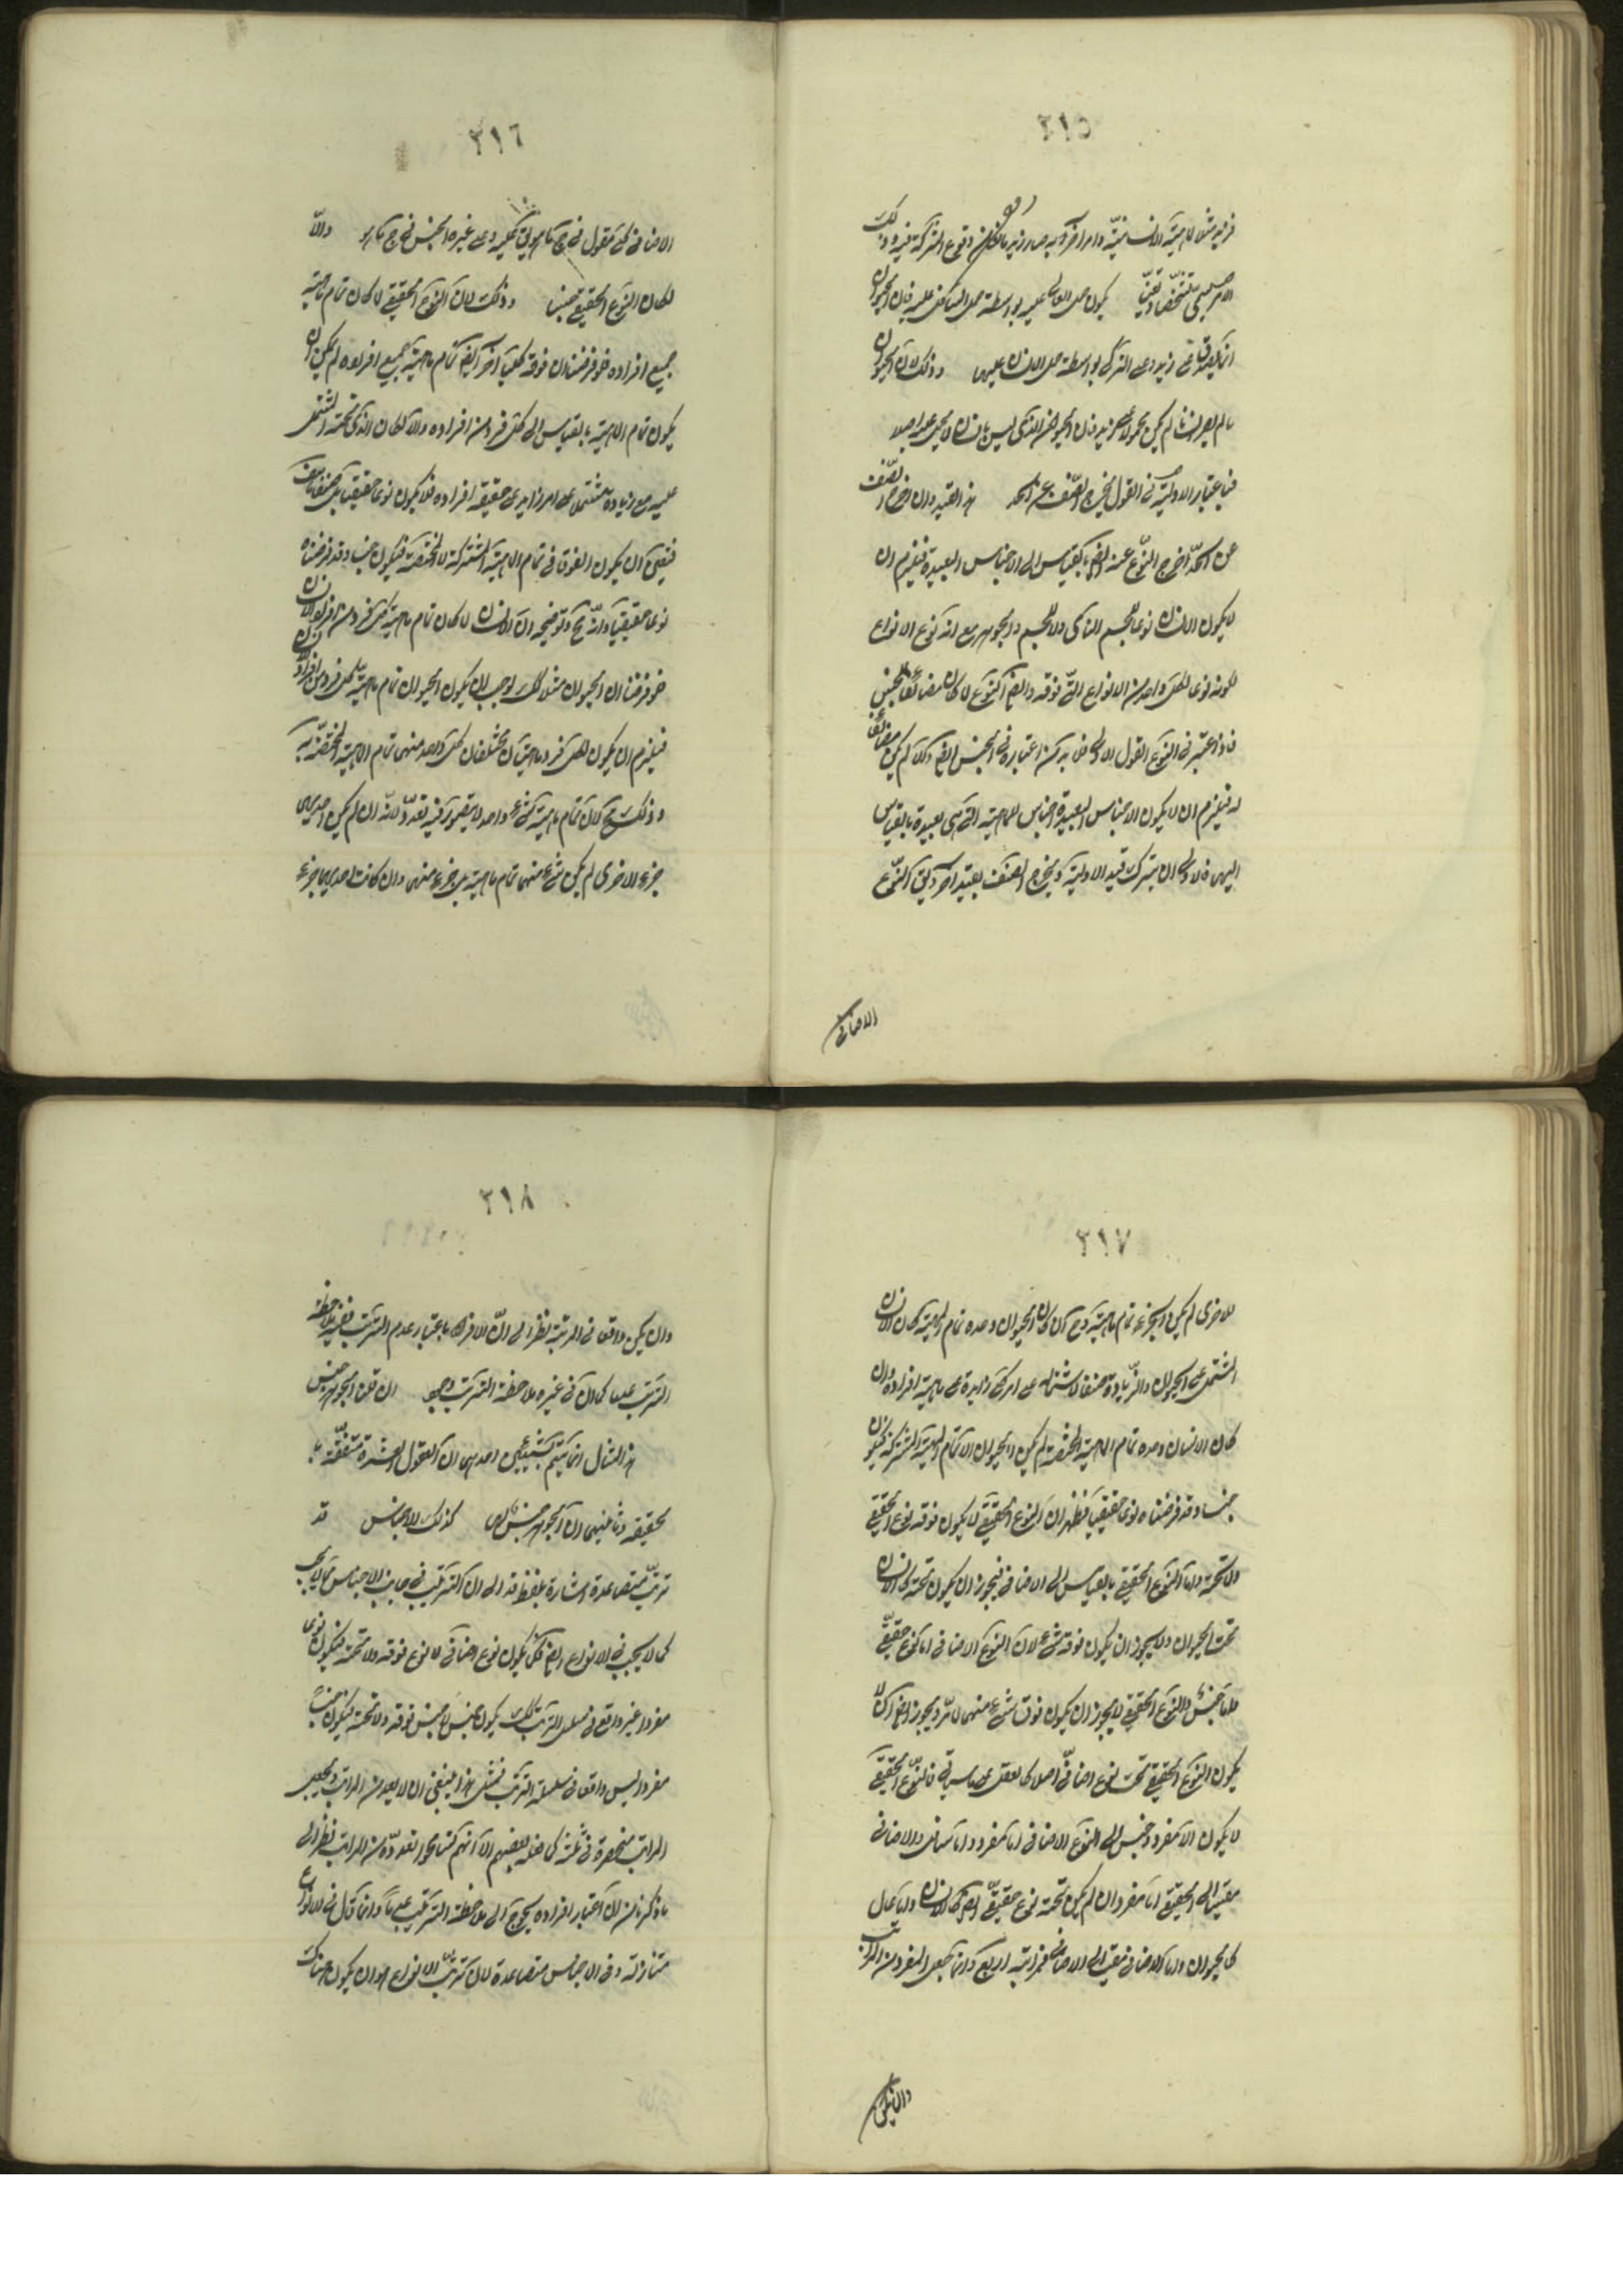 ٢١٥
الامر يسمى تشخصا وتعينا يكون حمل العالى عليه بواسطة حمل السافل عليه فان الحيوان
انما يصدق على زيد وعلى التركى بواسطة حمل الانسان عليهما وذلك لان الحيوان
ما لم يصر انسانا لم يكن محمولا على زيد فان الحيوان الذى ليس بانسان لا يحمل عليه اصلا
فباعتبار الاولية فى القول يخرج الصنف عن الحد هذا القيد وان اخرج الصنف
عن الحد اخرج النوع عنه ايضا بالقياس الى الاجناس البعيدة فيلزم ان
لا يكون الانسان نوعا للجسم النامى ولا للجسم ولا للجوهر مع انه نوع الانواع
لكونه نوعا لكل واحد من الانواع التى فوقه وايضا النوع لما كان مضايفا للجنس
فاذا اعتبر فى النوع القول الاولى فلا بد من اعتباره فى الجنس ايضا والا لم يكن مضايفا
له فيلزم ان لا يكون الاجناس البعيدة اجناس للماهية التى هى بعيدة بالقياس
اليها فالاولى ان يترك قيد الاولية ويخرج الصنف بقيد آخر النوع
الاضافى
٢١٦
الاضافى كلى مقول فى جواب ما هو عليه وعلى غيره الجنس فى جواب ما هو والا
لكان النوع الحقيقى جنسا وذلك لان النوع الحقيقى لما كان تمام ماهية
جميع افراده فلو فرضنا ان فوقه كليا آخر ايضا تمام ماهية جميع افراده لم يمكن ان
يكون تمام الماهية بالقياس الى كل فرد من افراده والا لكان الذى تحته المشتمل
عليه مع زيادة مشتملا على امر زايد على حقيقة افراده فلا يكون نوعا حقيقيا بل صنفا هف
فتعين ان يكون الفوقانى تمام الماهية المشتركة لا المختصة فيكون جنسا وقد فرضناه
نوعا حقيقيا وانه مح وتوضيحه ان الانسان لما كان تمام ماهية كل فرد من افراد الانسان
فلو فرضنا ان الحيوان مثلا كذلك لوجب ان يكون الحيوان تمام ماهية كل فرد من افراد الانسان
فيلزم ان يكون لكل فرد ماهيتان مختلفتان كل واحد منهما تمام الماهية المختصة به
وذلك مح لان تمام ماهية شئ واحد لا يتصور فيه تعدد لانه ان لم يكن احديهما
جزء الاخرى لم يكن شئ منهما تمام ماهية بل جزء منها وان كانت احديهما جزء
٢١٧
للاخرى لم يكن الجزء تمام ماهية وح ان كان الحيوان وحده تمام الماهية كان الانسان
المشتمل على الحيوان والزيادة صنفا لاشتماله على امر كلى زايد على ماهية افراده وان
كان الانسان وحده تمام الماهية المختصة لم يكن الحيوان الا تمام الماهية المشتركة فيكون
جنسا وقد فرضناه نوعا حقيقيا فظهر ان النوع الحقيقى لا يكون فوقه نوع حقيقى
ولا تحته واما النوع الحقيقى بالقياس الى الاضافى فيجوز ان يكون تحته كالانسان
تحت الحيوان ولا يجوز ان يكون فوقه شئ لان النوع الاضافى اما نوع حقيقى
واما جنس والنوع الحقيقى لا يجوز ان يكون فوق شئ منهما لما مر ويجوز ايضا ان لا
يكون النوع الحقيقى تحت نوع اضافى اصلا كالعقل فالنوع الحقيقى
لا يكون الا مفردا وقس الى النوع الاضافى اما مفرد واما سافل والاضافى
مقيسا الى الحقيقى اما مفرد ان لم يكن تحته نوع حقيقى ايضا كالانسان واما عال
كالحيوان واما الاضافى مقيسا الى الاضافى فمراتبه اربع وانما جعل المفرد من المراتب
وان لم يكن
٢١٨
وان لم يكن واقعا فى المرتبة نظرا الى ان الافراد باعتبار عدم الترتب ففيه ملاحظة
الترتب عدما كما ان فى غيره ملاحظة الترتب وجودا ان قلنا الجوهر جنس
هذا المثال انما يتم بشيئين احدهما ان العقول العشرة متفقة بالـ
حقيقة وثانيهما ان الجوهر جنس لها كذلك الاجناس قد
تترتب متصاعدة اشارة بلفظة قد الى ان الترتيب فى جانب الاجناس مما لا يجب
كما لا يجب فى الانواع ايضا فكما يكون نوع اضافى لا نوع فوقه ولا تحته فيكون نوعا
مفردا غير واقع فى سلسلة الترتب كذلك يكون جنس لا جنس فوقه ولا تحته فيكون جنسا
مفردا ليس واقعا فى سلسلة الترتب فمثل هذا ينبغى ان لا يعد من المراتب ويجعل
المراتب منحصرة فى ثلثة كما فعله بعضهم الا انهم تسامحوا فعدوه من المراتب نظرا الى
ما ذكرنا من ان اعتبار افراده يحوج الى ملاحظة الترتيب عدما وانما قال فى الانواع
متنازلة وفى الاجناس متصاعدة لان ترتب الانواع هو ان يكون هناك